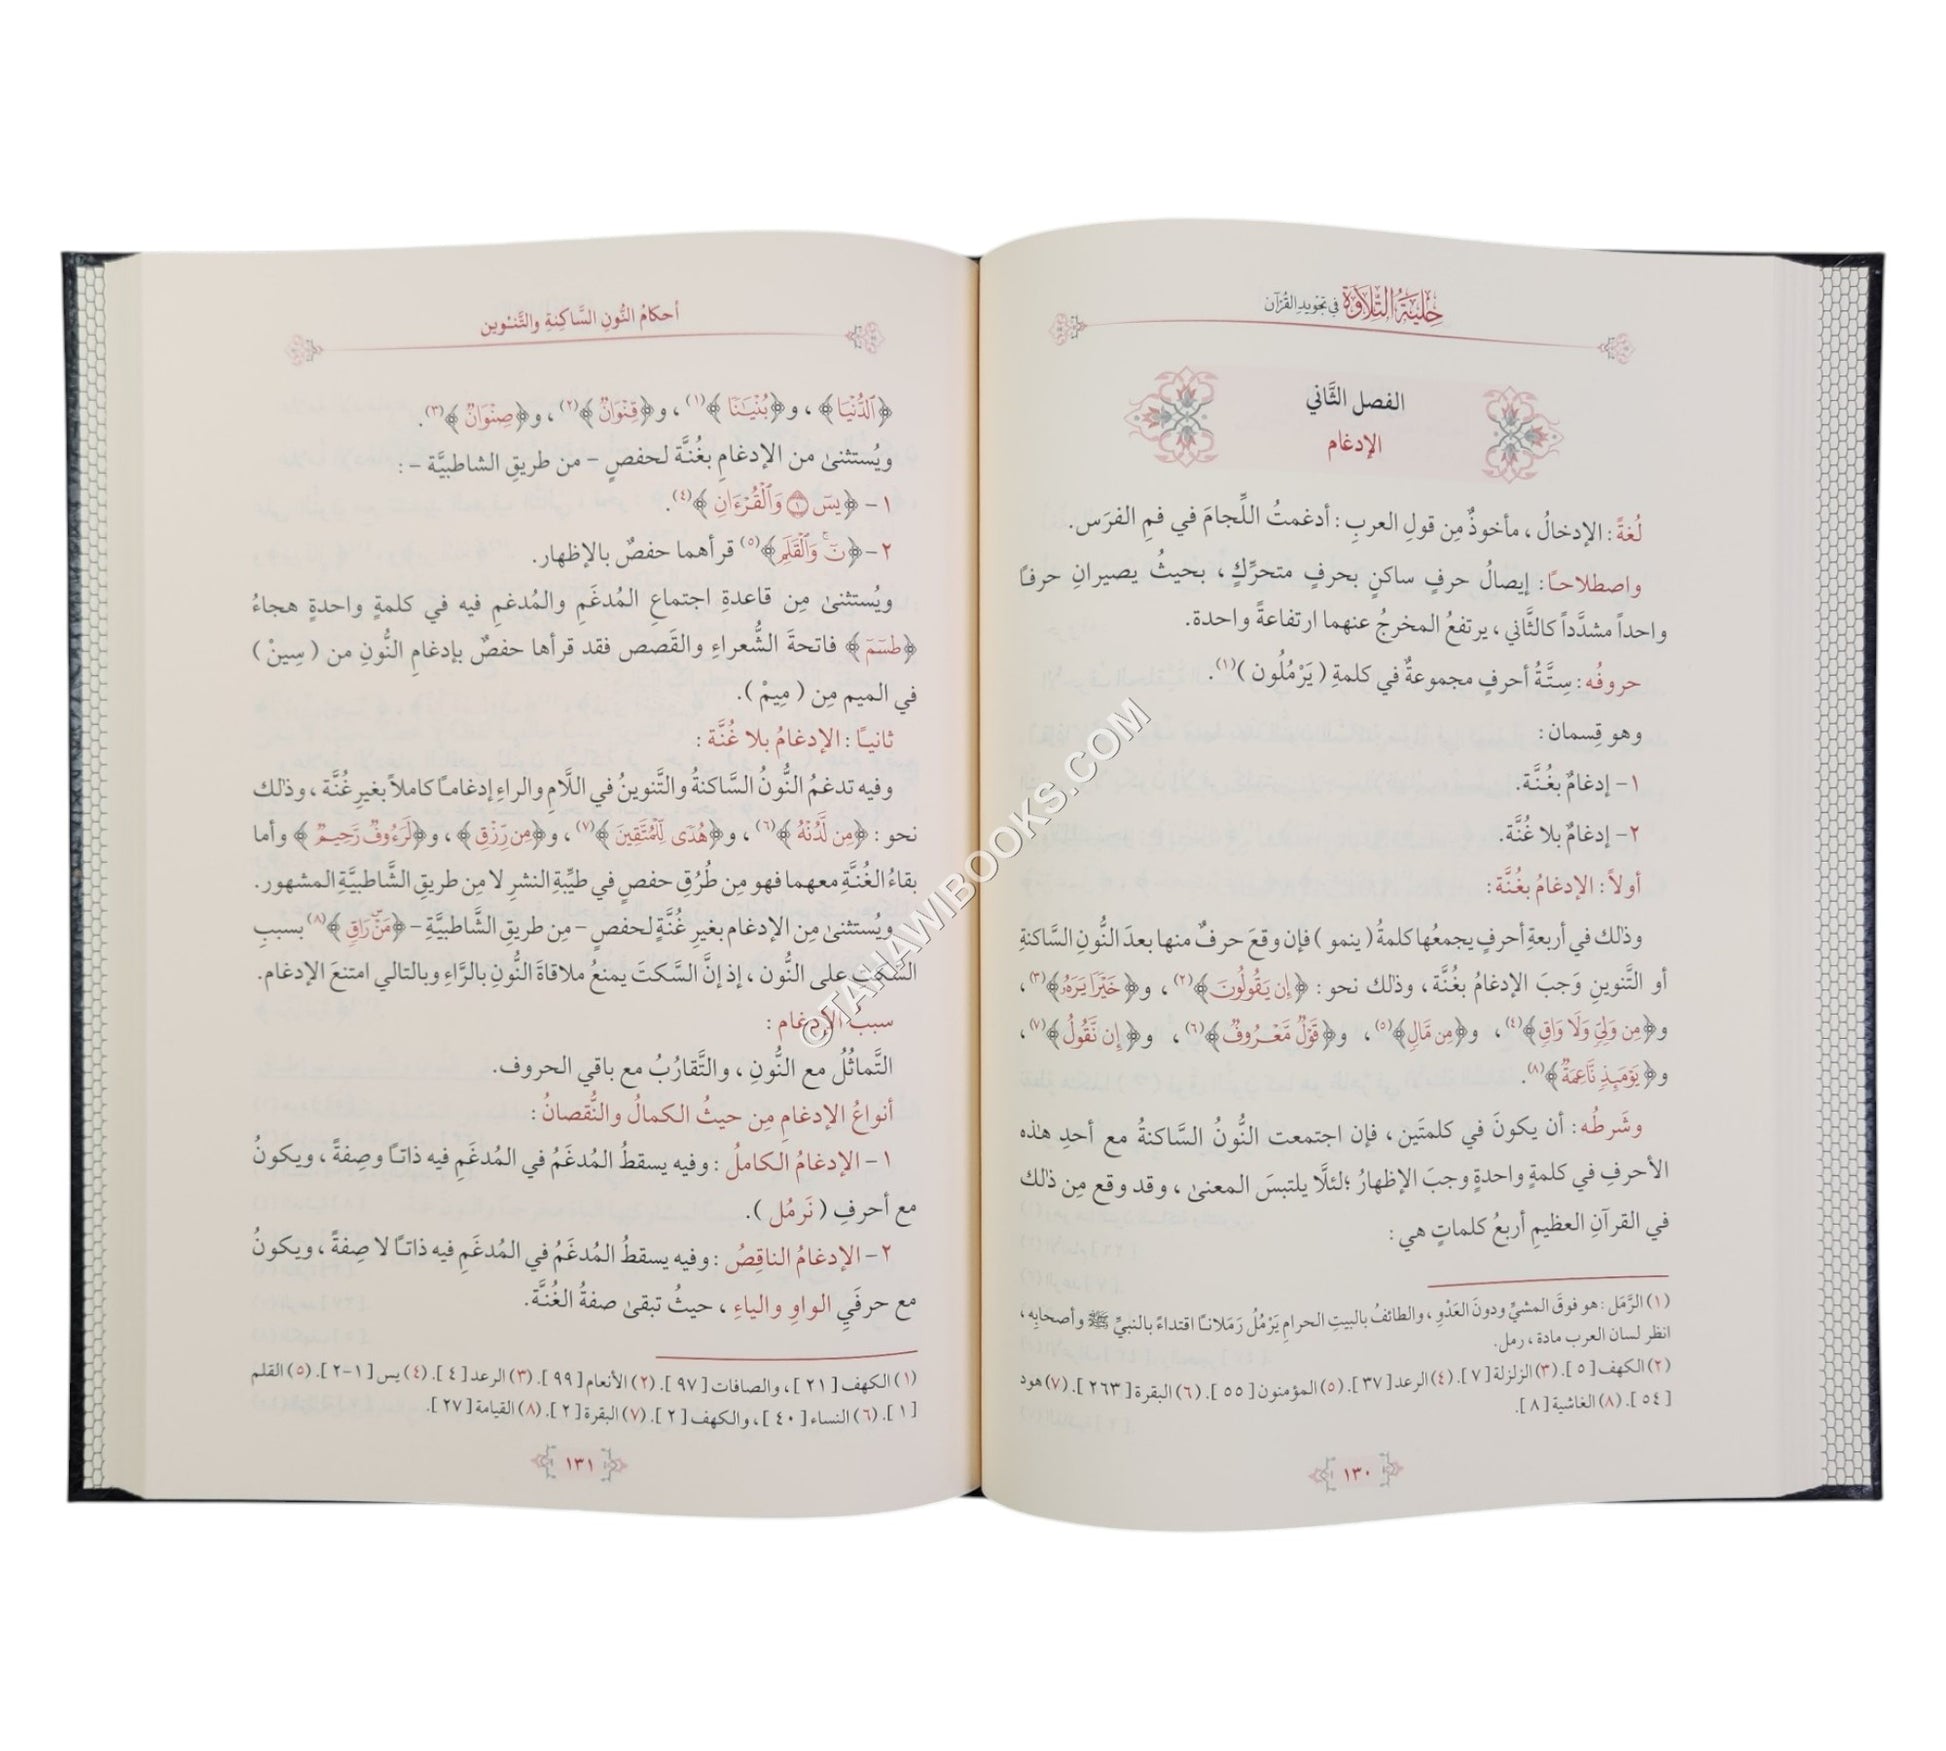 حِلْيَةُ التِّلَاوَةِ في تجْوِيدِ القُرْآن
الفصل الثَّاني
الإدغام
لُغةً : الإدخالُ ، مأخوذٌ مِن قولِ العربِ : أدغمتُ اللِّجامَ في فمِ الفرَس.
واصطلاحًا : إيصالُ حرفٍ ساكنٍ بحرفٍ متحرِّكٍ ، بحيثُ يصيرانِ حرفًا
واحداً مشدَّداً كالثَّاني ، يرتفعُ المخرجُ عنهما ارتفاعةً واحدة.
حروفُه : سِتَّةُ أحرفٍ مجموعةٌ في كلمةِ ( يَرْمُلُون )(١).
وهو قِسمان :
١- إدغامٌ بغُنَّة.
٢- إدغامٌ بلا غُنَّة.
أولاً : الإدغامُ بغُنَّة :
وذلك في أربعةِ أحرفٍ يجمعُها كلمةُ ( ينمو ) فإن وقعَ حرفٌ منها بعدَ النُّونِ السَّاكنةِ
أو التَّنوينِ وَجبَ الإدغامُ بغُنَّة ، وذلك نحو : ﴿إِن يَقُولُونَ﴾(٢) ، و﴿خَيْرًا يَرَهُۥ﴾(٣) ،
و﴿مِن وَلِيٍّ وَلَا وَاقٍ﴾(٤) ، و﴿مِن مَّالٍ﴾(٥) ، و﴿قَوْلٌ مَّعْرُوفٌ﴾(٦) ، و﴿إِن نَّقُولُ﴾(٧) ،
و﴿يَوْمَئِذٍ نَّاعِمَةٌ﴾(٨).
وشَرطُه : أن يكونَ في كلمتَين ، فإن اجتمعت النُّونُ السَّاكنةُ مع أحدِ هٰذه
الأحرفِ في كلمةٍ واحدةٍ وجبَ الإظهارُ ؛لئلَّا يلتبسَ المعنىٰ ، وقد وقع مِن ذٰلك
في القرآنِ العظيمِ أربعُ كلماتٍ هي :
(١) الرَّمَل : هو فوقَ المشيِ ودونَ العَدْوِ ، والطائفُ بالبيتِ الحرامِ يَرْمُلُ رَمَلانًا اقتداءً بالنبيِّ ﷺ وأصحابِه ،
انظر لسان العرب مادة ، رمل.
(٢) الكهف [ ٥ ]. (٣) الزلزلة [ ٧ ]. (٤) الرعد [ ٣٧ ]. (٥) المؤمنون [ ٥٥ ]. (٦) البقرة [ ٢٦٣ ]. (٧) هود
[ ٥٤ ]. (٨) الغاشية [ ٨ ].
١٣٠
أحكامُ النُّونِ السَّاكِنةِ والتَّنوين
﴿ٱلدُّنْيَا﴾ ، و﴿بُنْيَـٰنًا﴾(١) ، و﴿قِنْوَانٌ﴾(٢) ، و﴿صِنْوَانٌ﴾(٣).
ويُستثنىٰ من الإدغامِ بغُنَّة لحفصٍ – من طريقِ الشاطبيَّة – :
١- ﴿يسٓ ۝١ وَٱلْقُرْءَانِ﴾(٤).
٢-﴿نٓ ۚ وَٱلْقَلَمِ﴾(٥) قرأهما حفصٌ بالإظهار.
ويُستثنىٰ مِن قاعدةِ اجتماعِ المُدغَمِ والمُدغمِ فيه في كلمةٍ واحدةٍ هجاءُ
﴿طسٓمٓ﴾ فاتحةَ الشُّعراءِ والقَصص فقد قرأها حفصٌ بإدغامِ النُّونِ من ( سِينْ )
في الميم مِن ( مِيمْ ).
ثانيًا : الإدغامُ بلا غُنَّة :
وفيه تدغمُ النُّونُ السَّاكنةُ والتَّنوينُ في اللَّامِ والراءِ إدغامًا كاملاً بغيرِ غُنَّة ، وذٰلك
نحو : ﴿مِن لَّدُنْهُ﴾(٦) ، و﴿هُدًى لِّلْمُتَّقِينَ﴾(٧) ، و﴿مِن رِّزْقٍ﴾ ، و﴿لَرَءُوفٌ رَّحِيمٌ﴾ وأما
بقاءُ الغُنَّةِ معهما فهو مِن طُرُقِ حفصٍ في طيِّبةِ النشرِ لا مِن طريقِ الشَّاطبيَّةِ المشهور.
ويُستثنىٰ مِن الإدغام بغيرِ غُنَّةٍ لحفصٍ – مِن طريقِ الشَّاطبيَّةِ – ﴿مَنْ ۜ رَاقٍ﴾(٨) بسببِ
السَّكتِ على النُّون ، إذ إنَّ السَّكتَ يمنعُ ملاقاةَ النُّونِ بالرَّاءِ وبالتالي امتنعَ الإدغام.
سبب الإدغام :
التَّماثُلُ مع النُّونِ ، والتَّقاربُ مع باقي الحروف.
أنواعُ الإدغامِ مِن حيثُ الكمالُ والنُّقصانُ :
١- الإدغامُ الكاملُ : وفيه يسقطُ المُدغَمُ في المُدغَمِ فيه ذاتًا وصِفةً ، ويكونُ
مع أحرفِ ( نَرمُل ).
٢- الإدغامُ الناقِصُ : وفيه يسقطُ المُدغَمُ في المُدغَمِ فيه ذاتًا لا صِفةً ، ويكونُ
مع حرفَيِ الواوِ والياءِ ، حيثُ تبقىٰ صفةُ الغُنَّة.
(١) الكهف [ ٢١ ] ، والصافات [ ٩٧ ]. (٢) الأنعام [ ٩٩ ]. (٣) الرعد [ ٤ ]. (٤) يس [ ١-٢ ]. (٥) القلم
[ ١ ]. (٦) النساء [ ٤٠ ] ، والكهف [ ٢ ]. (٧) البقرة [ ٢ ]. (٨) القيامة [ ٢٧ ].
١٣١
©TAHAWIBOOKS.COM